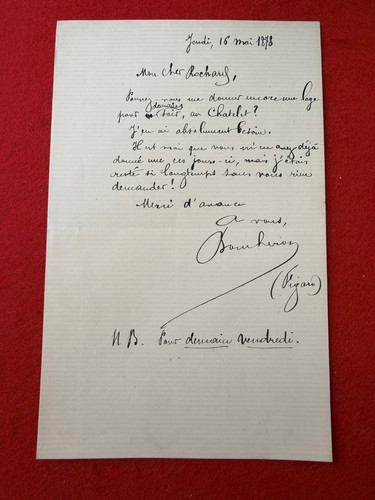 Jeudi, 16 mai 1878
Mon cher Rochard,
Pouvez-vous me donner encore une loge
pour demain soir, au Chatelet?
J'en ai absolument besoin.
Il est vrai que vous m'en avez déjà
donné une ces jours-ci, mais j'étais
resté si longtemps sans vous rien
demander!
Merci d'avance
A vous,
(Figaro)
N.B. Pour demain vendredi.